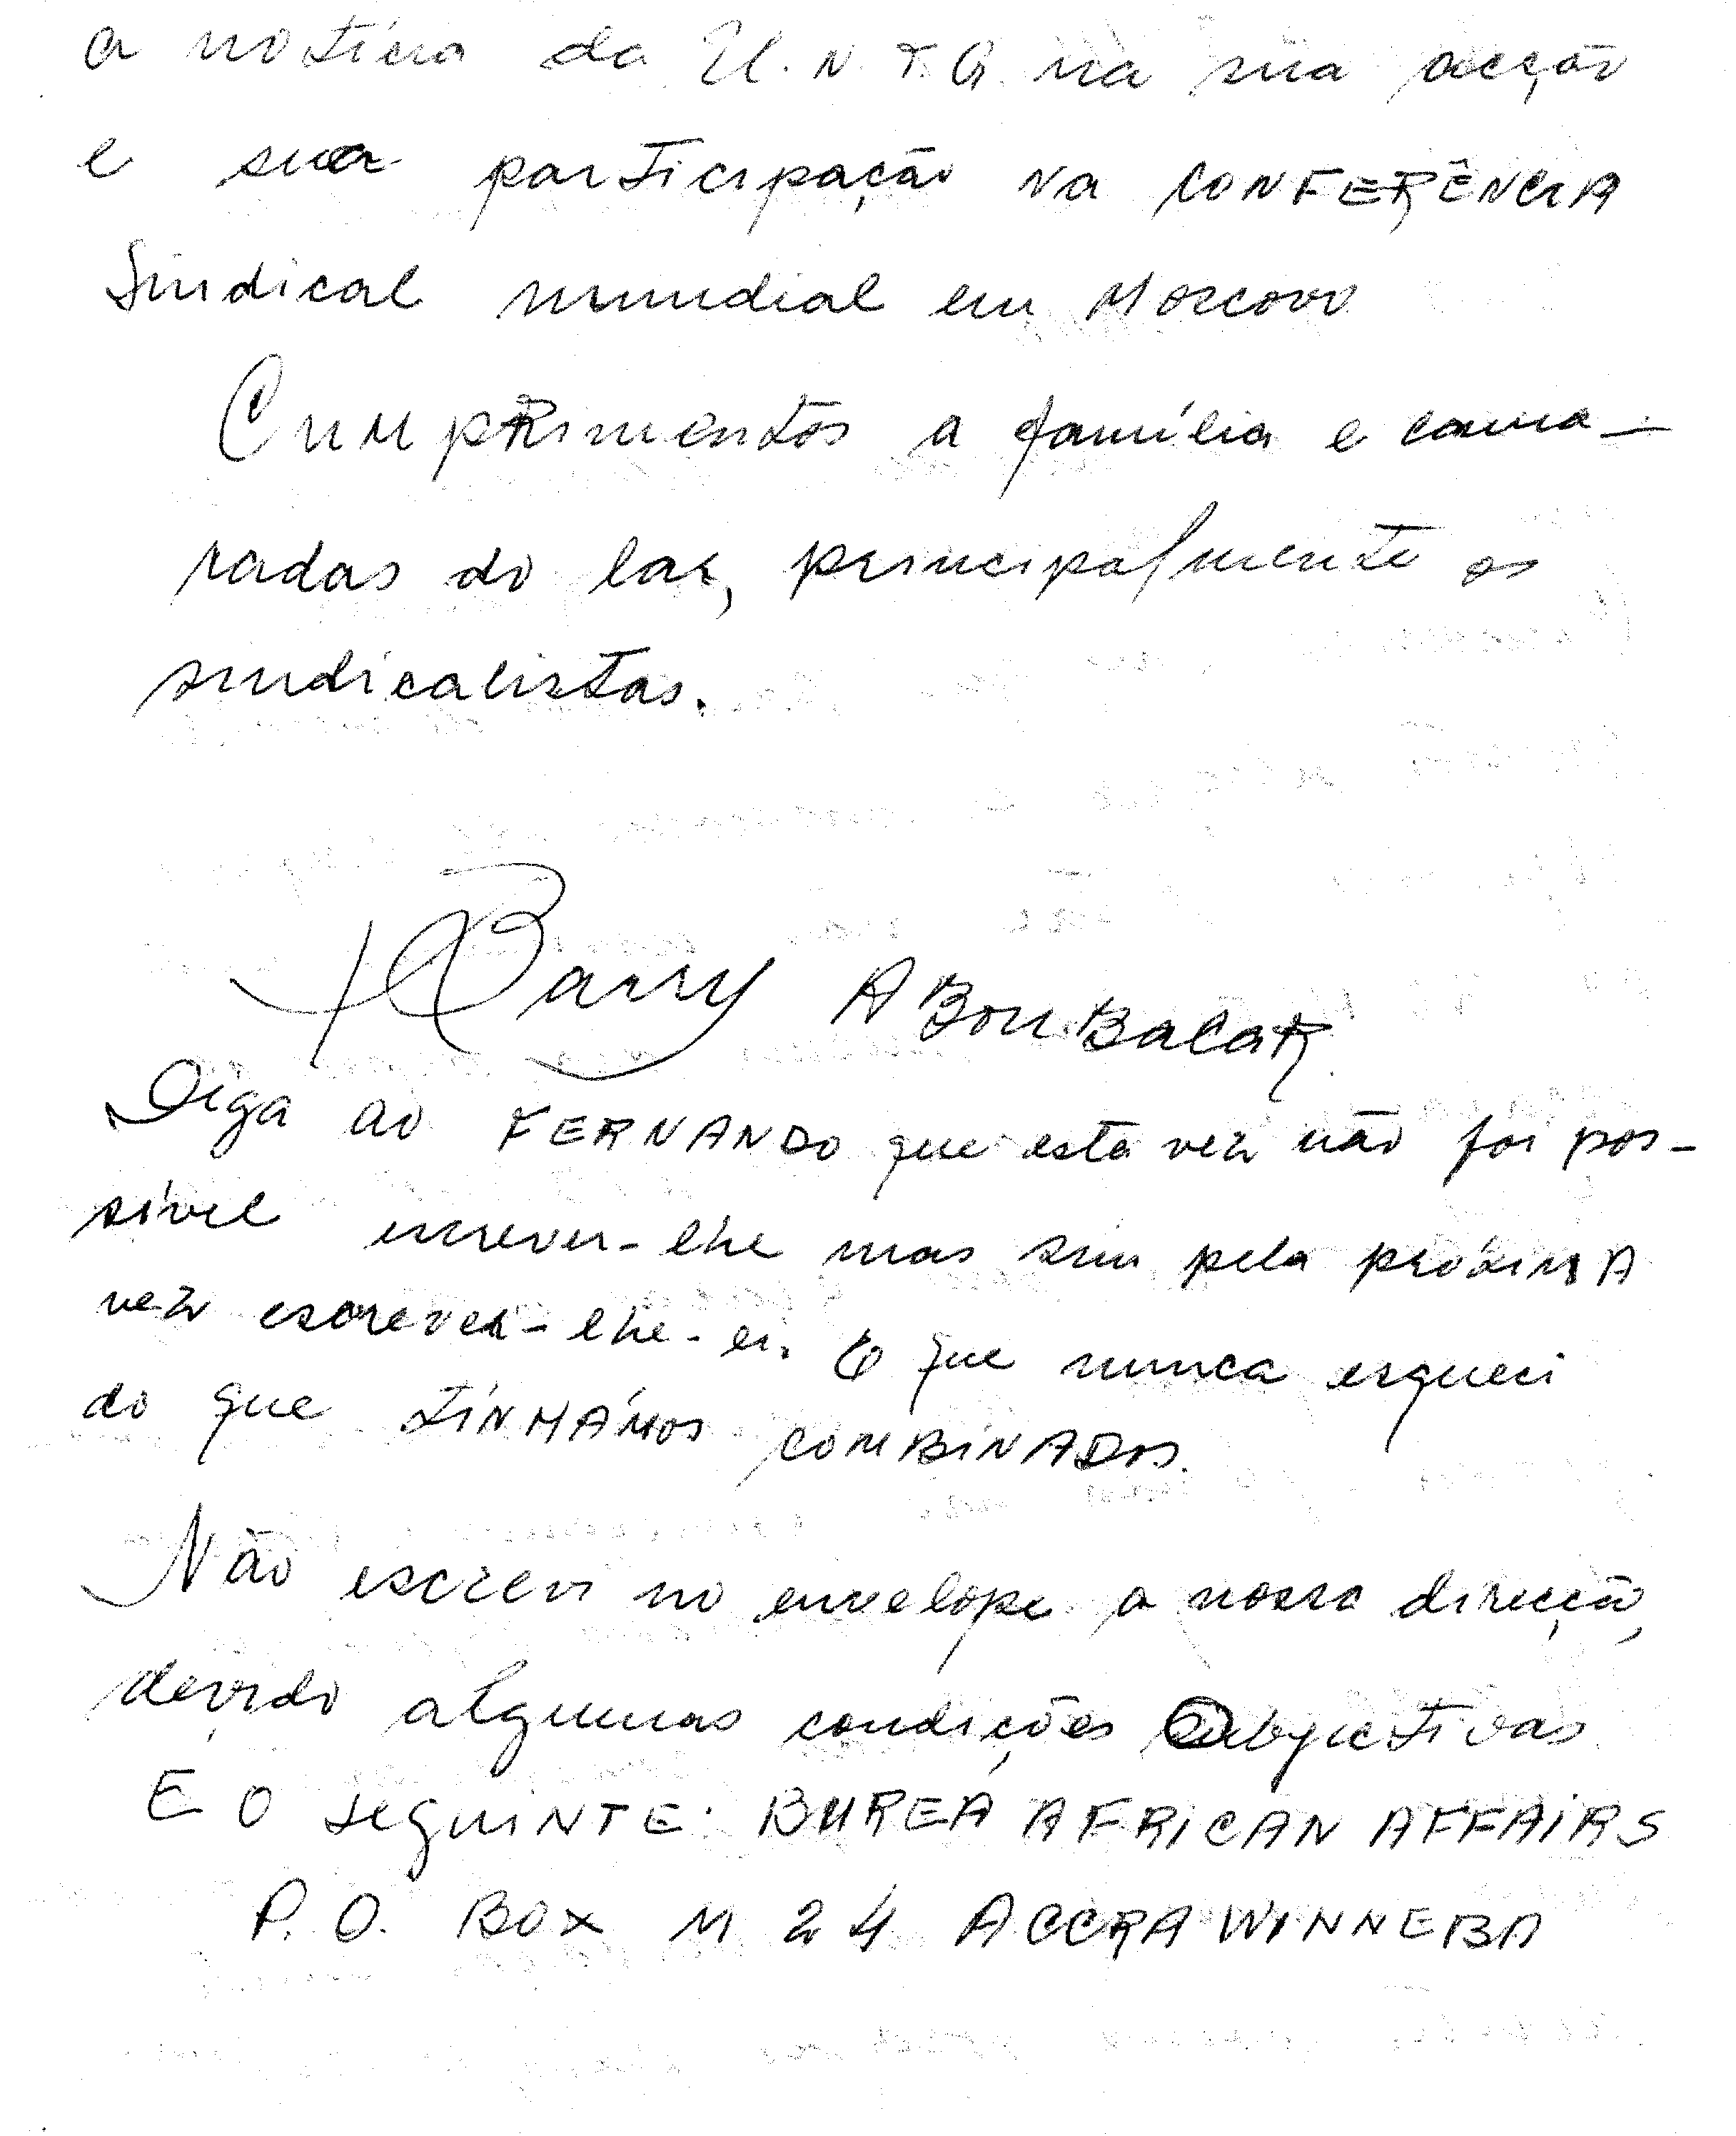 a notícia da U.N.T.G. na sua acção
e sua participação na CONFERÊNCIA
Sindical mundial em Moscovo
Cumprimentos a família e cama-
radas do lar, principalmente os
sindicalistas.
Barry ABouBacaR
Diga ao FERNANDO que esta vez não foi pos-
sível escrever-lhe mas sim pela próximA
vez escrever-lhe-ei. E que nunca esqueci
do que tínHÁmos COMBINADOS.
Não escrevi no envelope a nossa direcção,
devido algumas condições subjectivas
E O seguiNTE: BUREA AFRICAN AFFAIRS
P.O. BOX M 24 ACCRA WINNEBA